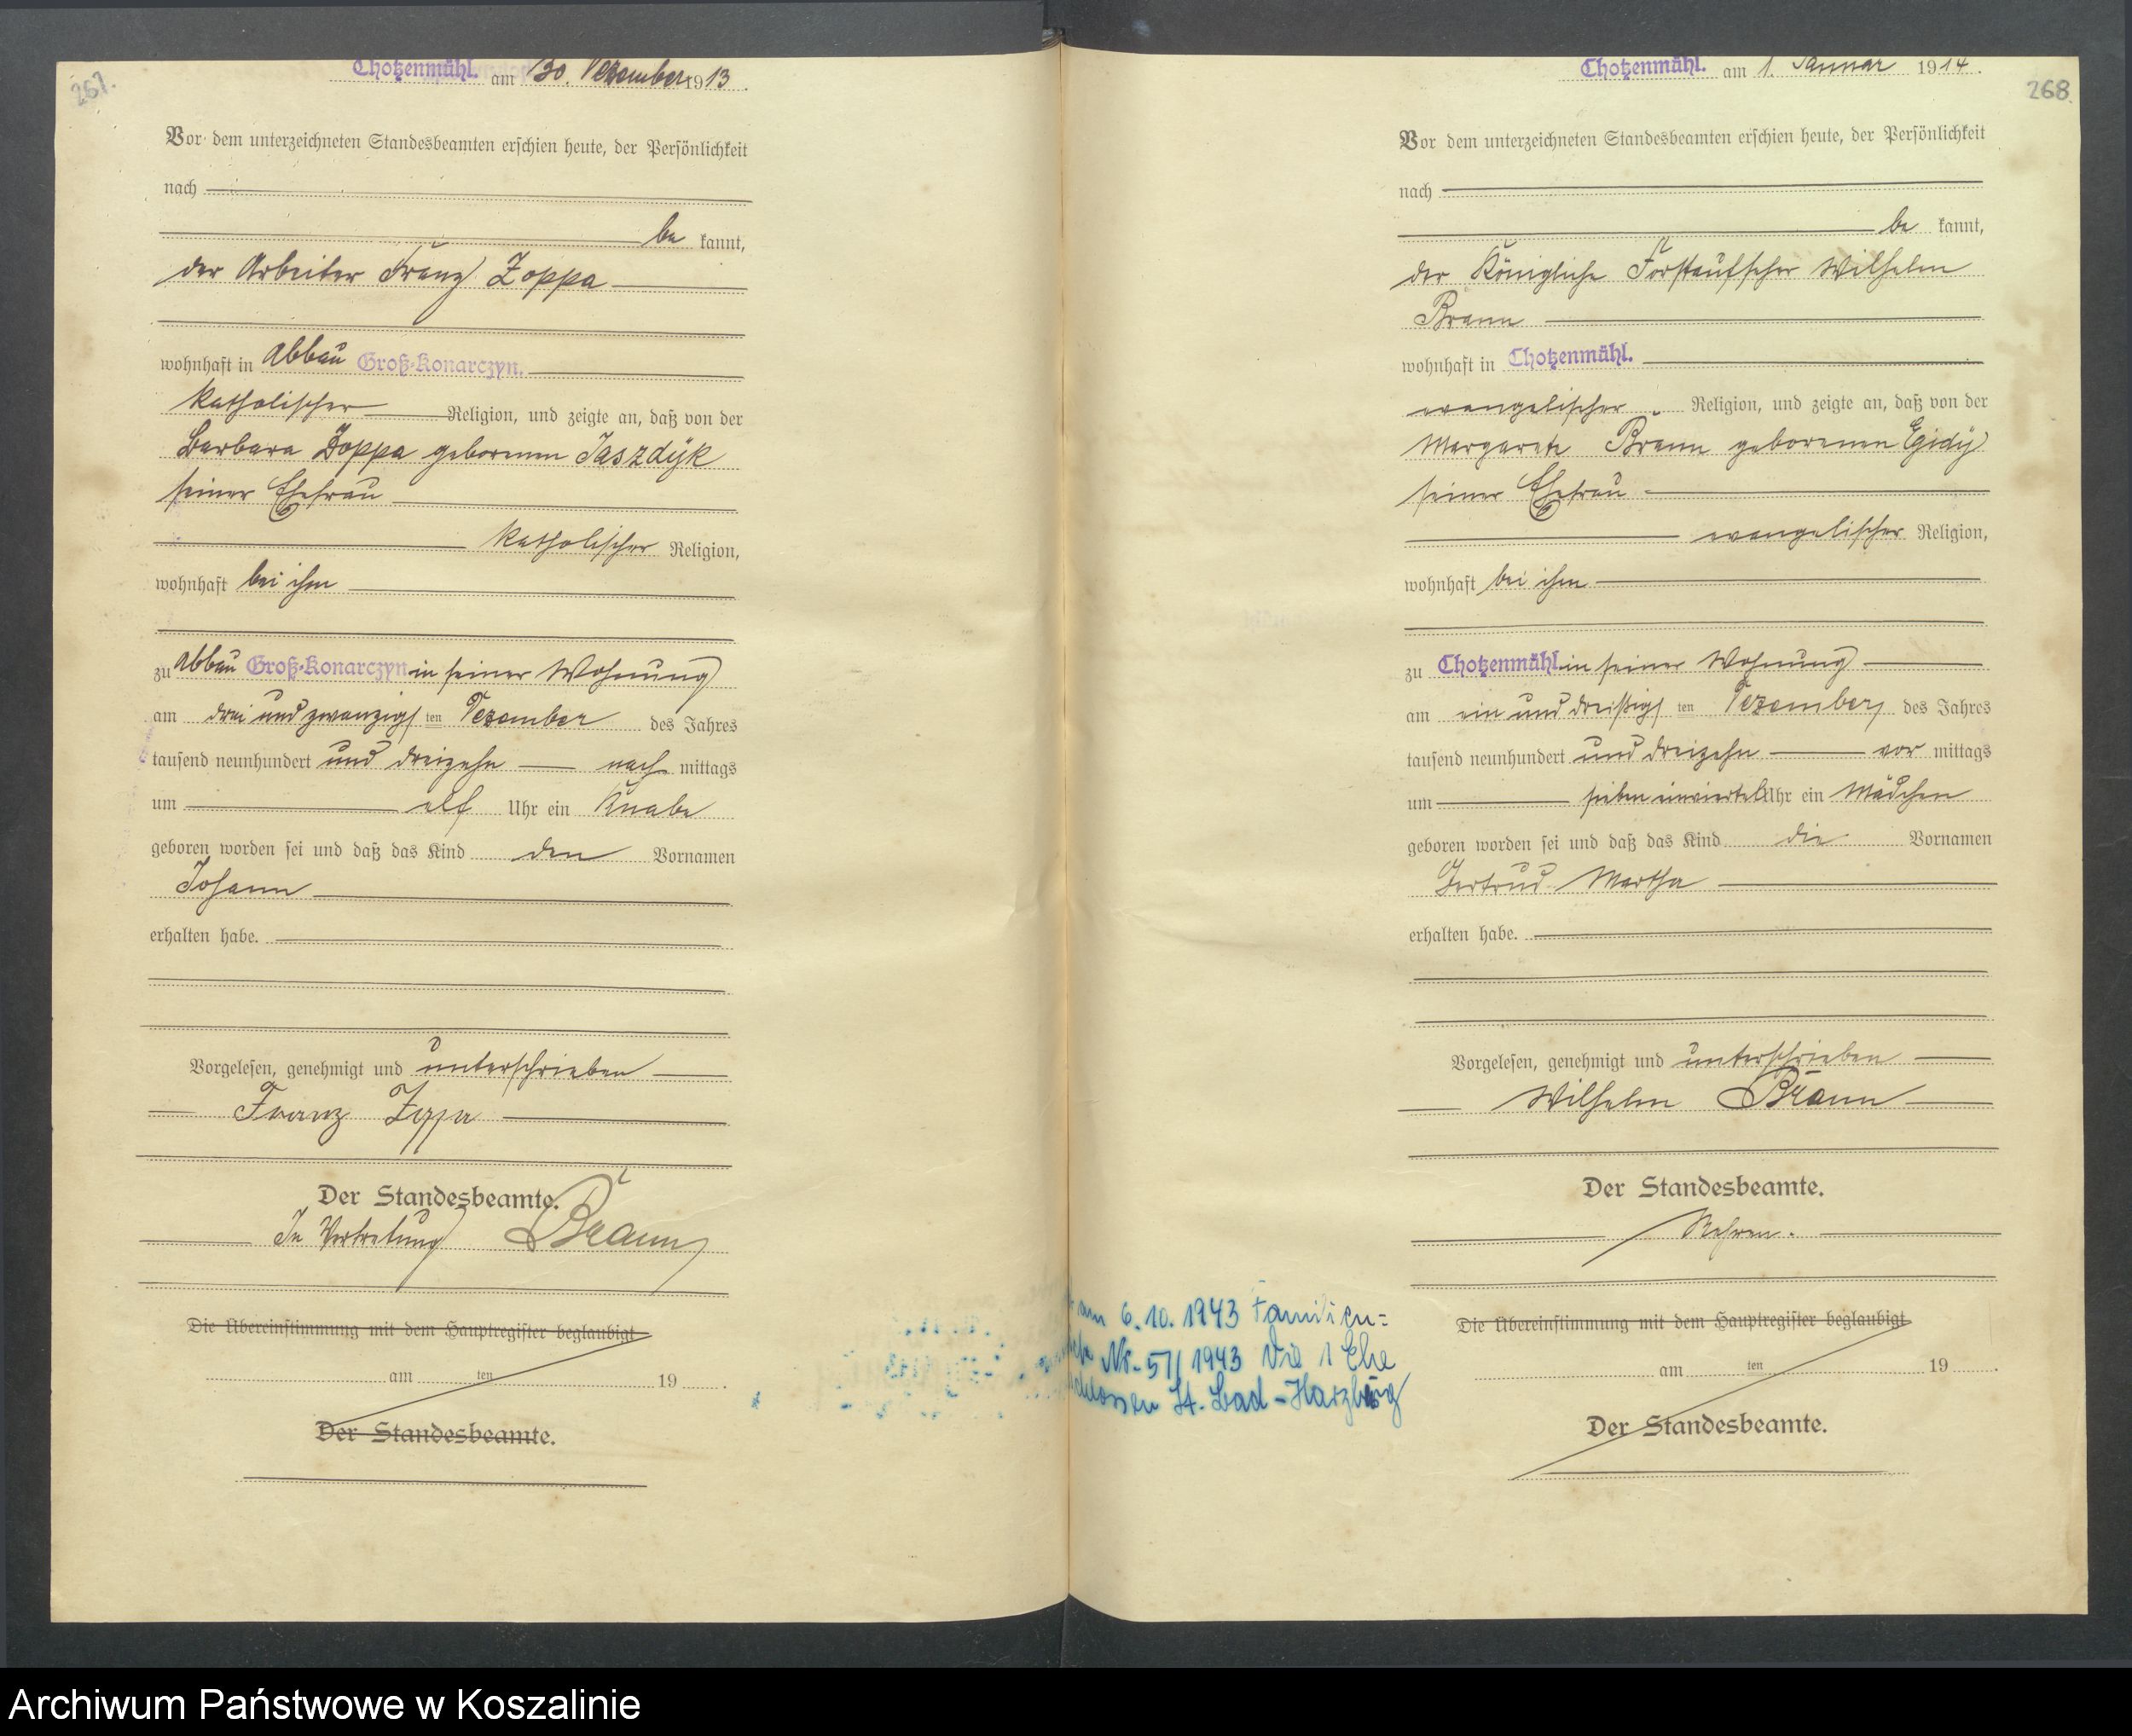 267.
Chotzenmühl. am 30. Dezember 1913.
Vor dem unterzeichneten Standesbeamten erschien heute, der Persönlichkeit
nach
be kannt,
der Arbeiter Franz Zoppa
wohnhaft in Abbau Groß-Konarczyn.
katholischer Religion, und zeigte an, daß von der
Barbara Zoppa geborenen Jaszdyk
seiner Ehefrau
katholischer Religion,
wohnhaft bei ihm
zu Abbau Groß-Konarczyn in seiner Wohnung
am drei und zwanzigsten Dezember des Jahres
tausend neunhundert und dreizehn nach mittags
um elf Uhr ein Knabe
geboren worden sei und daß das Kind den Vornamen
Johann
erhalten habe.
Vorgelesen, genehmigt und unterschrieben
Franz
Der Standesbeamte.
In Vertretung Braun
Die Übereinstimmung mit dem Hauptregister beglaubigt
am ten 19 .
Der Standesbeamte.
268
Chotzenmühl. am 1. Januar 1914.
Vor dem unterzeichneten Standesbeamten erschien heute, der Persönlichkeit
nach
be kannt,
der Königliche Forstaufseher Wilhelm
Braun
wohnhaft in Chotzenmühl.
evangelischer Religion, und zeigte an, daß von der
Margarete Braun geborenen Egidy
seiner Ehefrau
evangelischer Religion,
wohnhaft bei ihm
zu Chotzenmühl in seiner Wohnung
am ein und dreißigsten Dezember des Jahres
tausend neunhundert und dreizehn vor mittags
um sieben einviertel Uhr ein Mädchen
geboren worden sei und daß das Kind die Vornamen
Gertrud Martha
erhalten habe.
Vorgelesen, genehmigt und unterschrieben
Wilhelm Braun
Der Standesbeamte.
Die Übereinstimmung mit dem Hauptregister beglaubigt
am ten 19 .
Der Standesbeamte.
am 6.10.1943 Familien=
Nr. 57/1943 die 1 Ehe
St. Bad-Harzburg
Archiwum Państwowe w Koszalinie